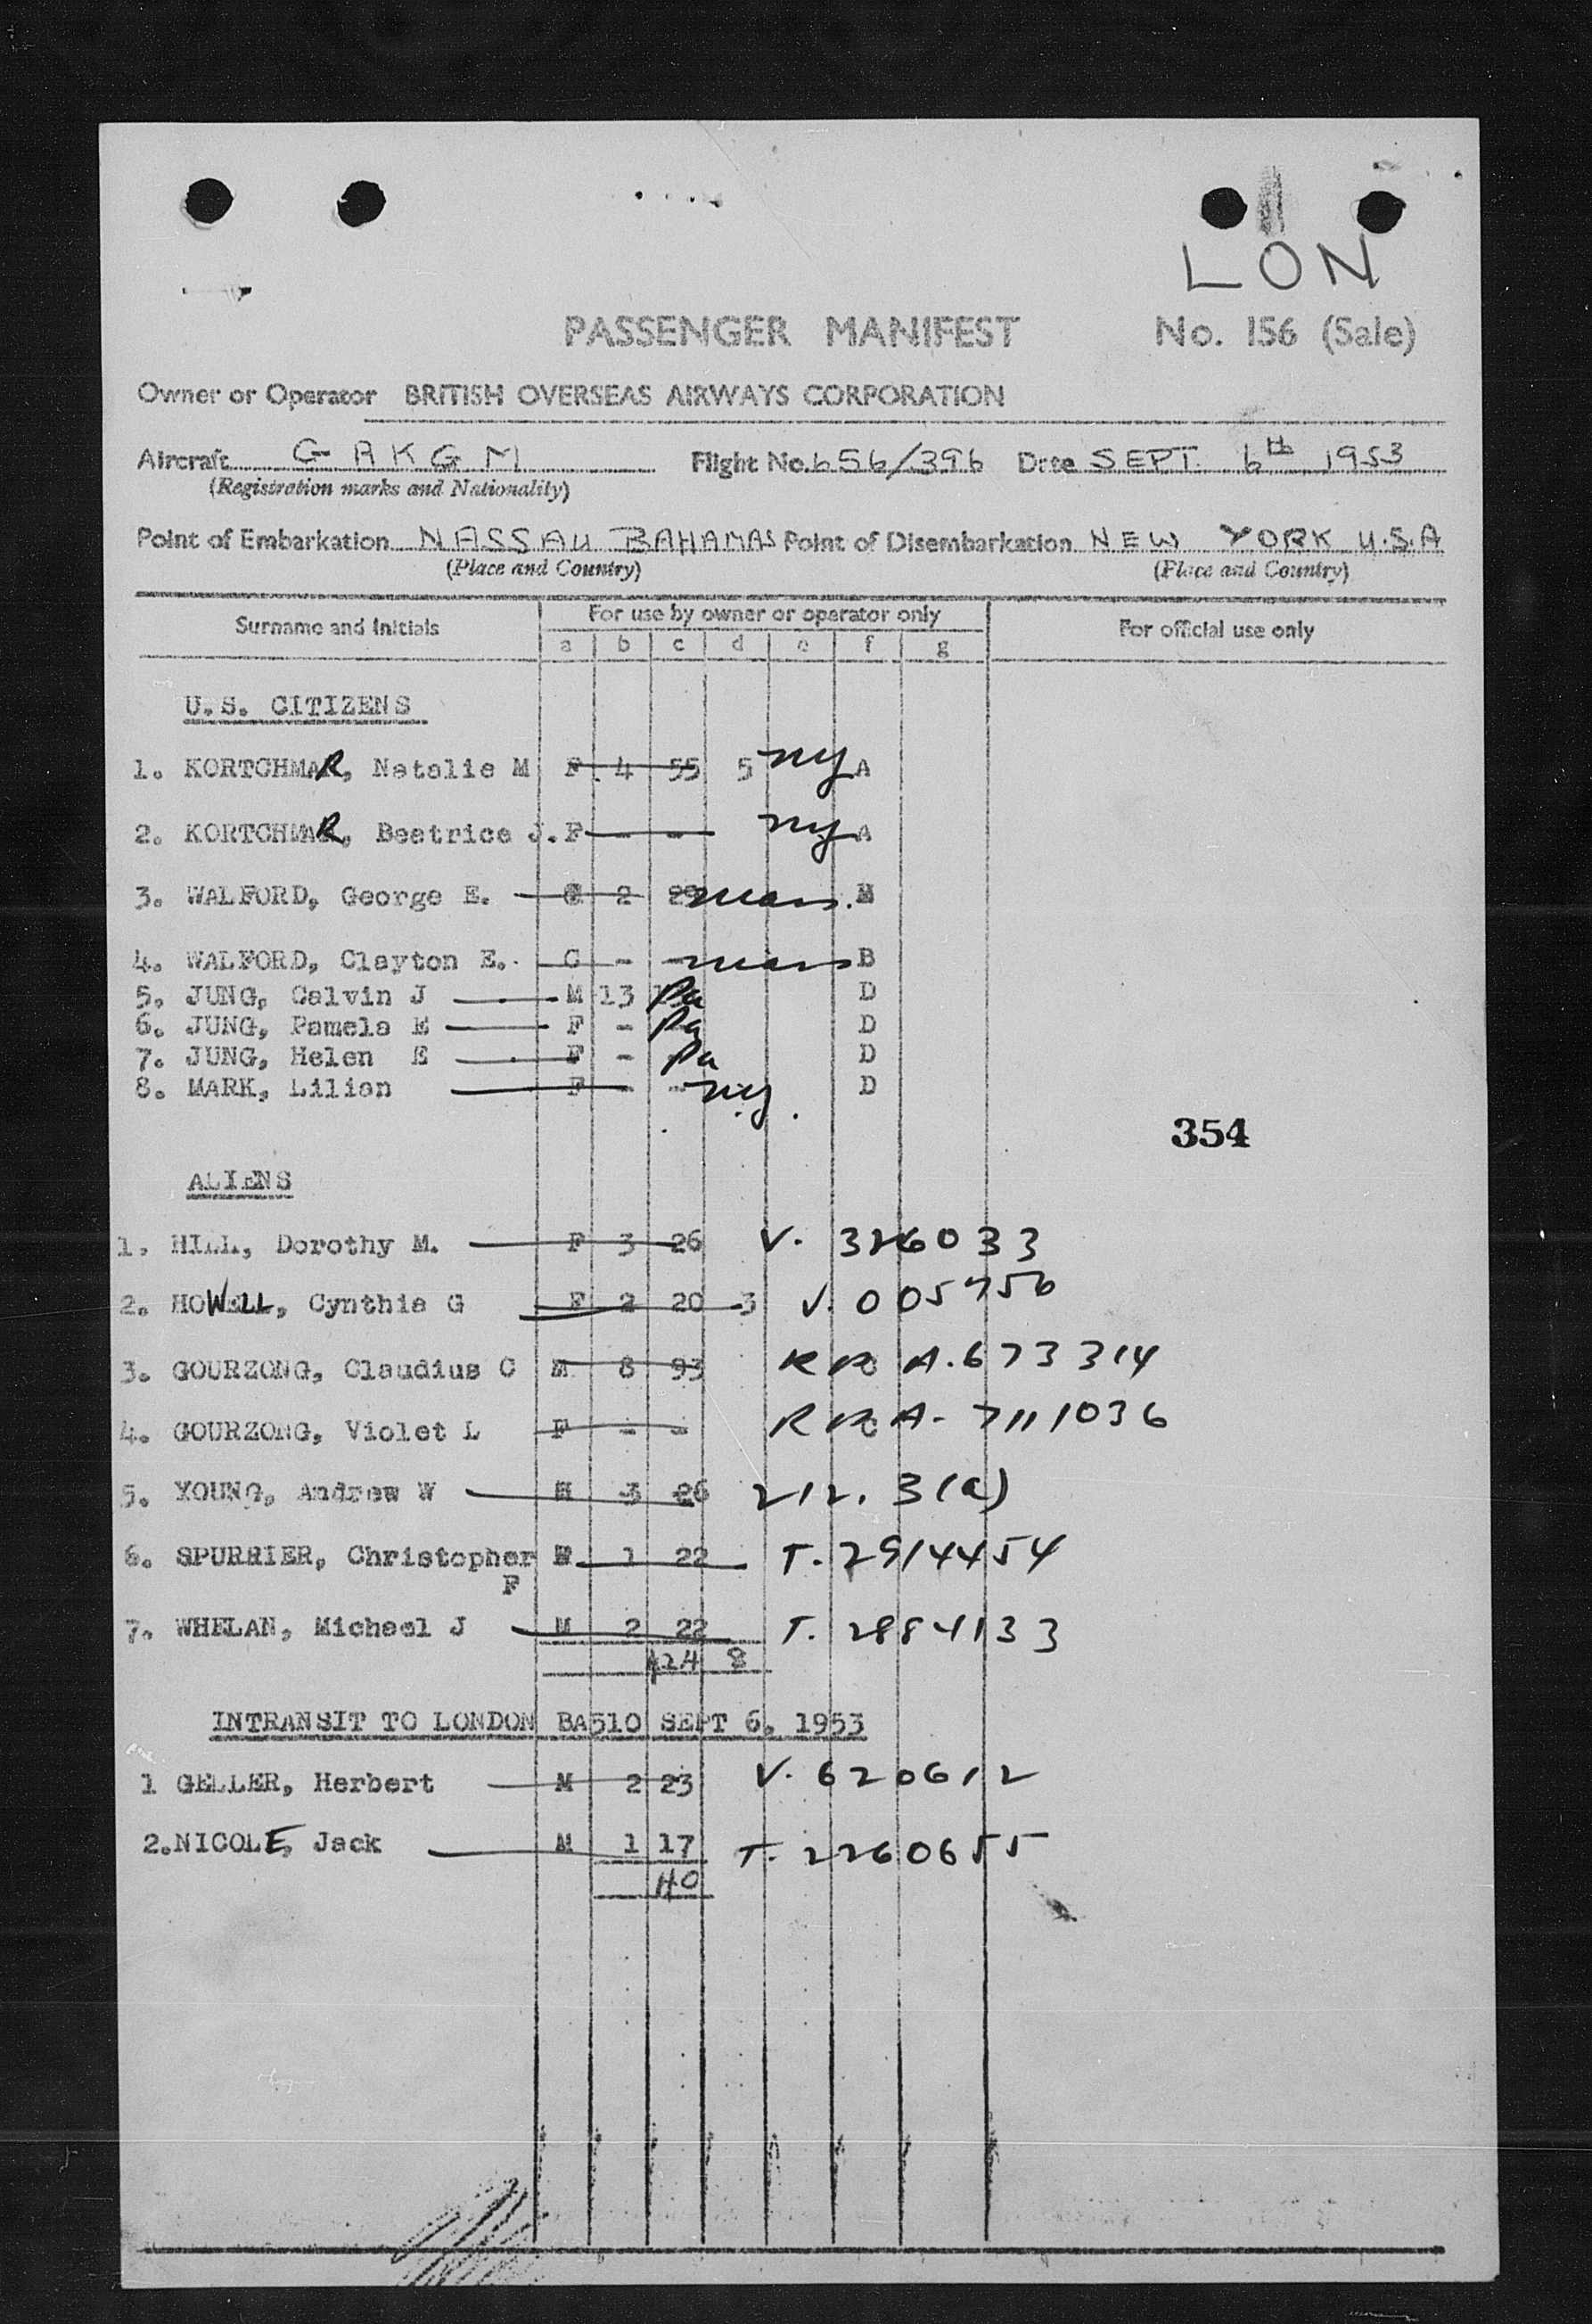 LON
PASSENGER MANIFEST No. 156 (Sale)
Owner or Operator BRITISH OVERSEAS AIRWAYS CORPORATION
Aircraft G AKGM Flight No. 656/396 Date SEPT. 6th 1953
(Registration marks and Nationality)
Point of Embarkation NASSAU BAHAMAS Point of Disembarkation NEW YORK U.S.A
(Place and Country) (Place and Country)
Surname and Initials For use by owner or operator only For official use only
a b c d e f g
U.S. CITIZENS
1. KORTCHMAR, Natalie M F 4 55 5 ny A
2. KORTCHMAR, Beatrice J. F - - ny A
3. WALFORD, George E. 2 29 mass.
4. WALFORD, Clayton E. C - - mass B
5. JUNG, Calvin J M 13 Pa D
6. JUNG, Pamela E F - Pa D
7. JUNG, Helen E F - Pa D
8. MARK, Lilian F - - ny. D
354
ALIENS
1. HILL, Dorothy M. F 3 26 V. 326033
2. HOWELL, Cynthia G F 2 20 3 V. 005756
3. GOURZONG, Claudius C M 8 93 RR A.673314
4. GOURZONG, Violet L F - - RR A-7111036
5. YOUNG, Andrew W M 3 26 212. 3(a)
6. SPURRIER, Christopher 1 22 T. 2914454
F
7. WHELAN, Michael J M 2 22 T. 2884133
424 8
INTRANSIT TO LONDON BA510 SEPT 6, 1953
1 GELLER, Herbert M 2 23 V. 620612
2. NICOLE, Jack M 1 17 T. 2260655
40